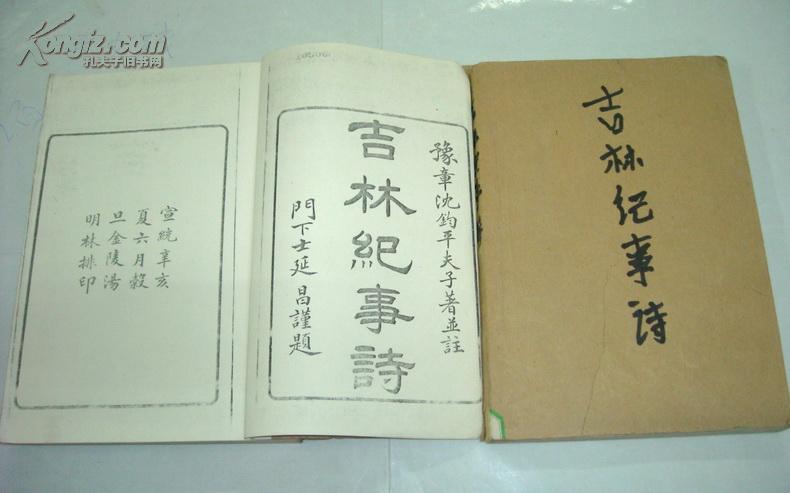 Kongfz.com
孔夫子旧书网
豫章沈鈞平夫子著並註
吉林紀事詩
門下士延昌謹題
宣統辛亥
夏六月穀
旦金陵湯
明林排印
吉林纪事诗